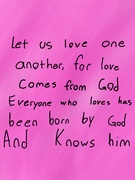 Let us love one
another, for love
Comes from God
Everyone who loves has
been born by God
And Knows him